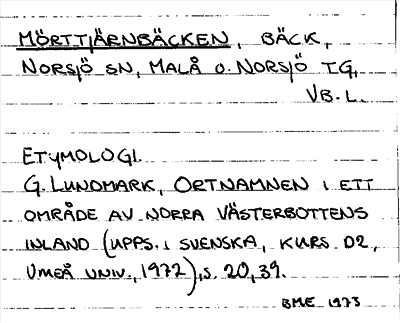 MÖRTTJÄRNBÄCKEN, BÄCK,
NORSJÖ SN, MALÅ O. NORSJÖ TG,
VB. L.
ETYMOLOGI.
G. LUNDMARK, ORTNAMNEN I ETT
OMRÅDE AV NORRA VÄSTERBOTTENS
INLAND (UPPS. I SVENSKA, KURS D2,
UMEÅ UNIV., 1972), S. 20, 39.
BME 1973